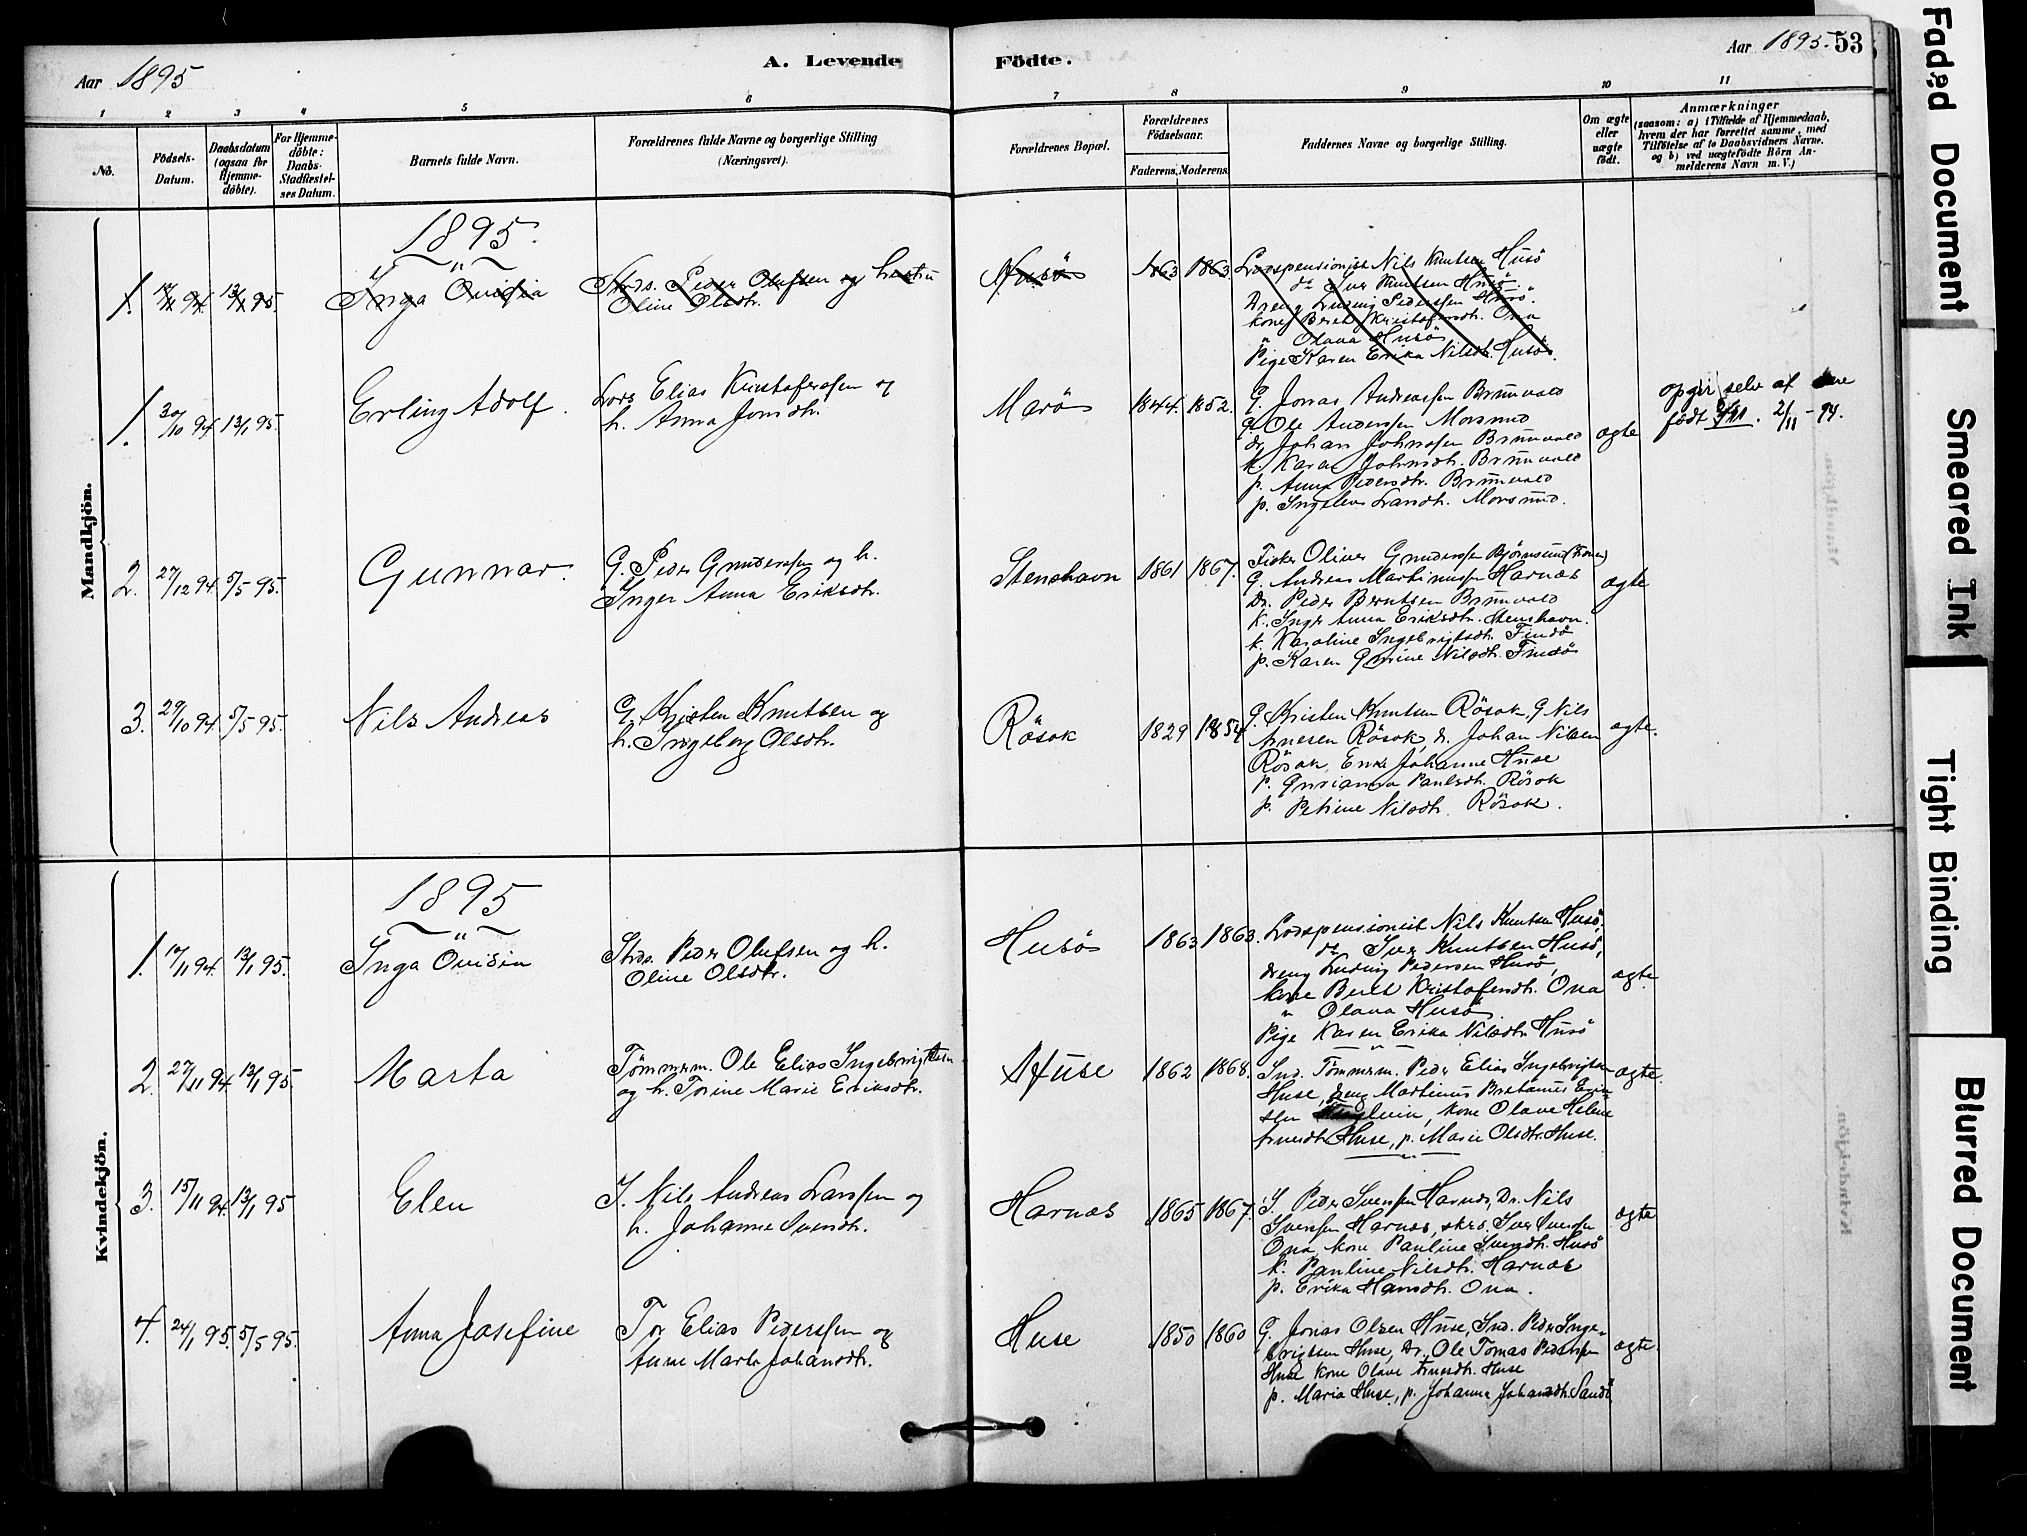 Aar 1895
A. Levende Födte.
Aar 1895. 53
1 2 3 4 5 6 7 8 9 10 11
No.
Födsels-Datum.
Daabsdatum (ogsaa for Hjemme-döbte).
For Hjemme-döbte: Daabs-Stadfæstel-ses Datum.
Barnets fulde Navn.
Forældrenes fulde Navne og borgerlige Stilling (Næringsvei).
Forældrenes Bopæl.
Forældrenes Födselsaar.
Faderens. Moderens.
Faddernes Navne og borgerlige Stilling.
Om ægte eller uægte födt.
Anmærkninger
(saasom: a) i Tilfælde af Hjemmedaab, hvem der har forrettet samme, med Tilföielse af to Daabsvidners Navne, og b) ved uægtefödte Börn An-melderens Navn m. V.)
Mandkjön.
1895.
1. 13/1 95. Inga Ovidia
Strds. Peder Olufsen og hustru
Oline Olsdtr.
Husö 1863 1863.
Lodspensionist Nils Knutsen Husö
do Iver Knutsen Husö
Dreng Ludvig Pedersen Husö.
Kone Beret Kristofersdtr. Ona
" Olava Husö
Pige Karen Erika Nilsdtr. Husö.
1. 30/10 94. 13/1 95. Erling Adolf.
Lods Elias Kristofersen og
h. Anna Jonsdtr.
Marö 1844. 1852.
G. Jonas Andreassen Brunvold
G. Ole Andersen Morsund
dr. Johan Johnsen Brunvold
k. Karen Johnsdtr. Brunvold
p. Anna Pedersdtr. Brunvold
p. Ingeleva Larsdtr. Morsund.
ægte
födt 2/11 - 94.
2. 27/12 94. 5/5 95. Gunnar.
G. Peder Gundersen og h.
Inger Anna Eriksdtr.
Stenshavn 1861 1867.
Fisker Oliver Gundersen Bjørnsund
G. Andreas Martinussen Harnæs
Dr. Peder Berntsen Brunvold
k. Inger Anna Eriksdtr. Stenshavn.
k. Karoline Ingebrigtsdtr. Findö
p. Karen Gurine Nilsdtr. Findö
ægte
3. 29/10 94. 5/5 95. Nils Andreas
G. Kristen Knutsen og
h. Ingeborg Olsdtr.
Rösok 1829 1854
G. Kristen Knutsen Rösok, G Nils
Arnesen Rösok, dr. Johan Nilsen
Rösok, Enke Johanne Huse
p. Gurianna Paulsdtr. Rösok
p. Petrine Nilsdtr. Rösok.
ægte.
Kvindekjön.
1895
1. 17/11 94. 13/1 95. Inga Ovidia
Strds. Peder Olufsen og h.
Oline Olsdtr.
Husö 1863 1863.
Lodspensionist Nils Knutsen Husö,
do Iver Knutsen Husö,
dreng Ludvig Pedersen Husö,
kone Beret Kristofersdtr. Ona
" Olava Husö.
Pige Karen Erika Nilsdtr. Husö
ægte.
2. 27/11 94 13/1 95. Marta
Tömmerm. Ole Elias Ingebrigtsen
og h. Torine Marie Eriksdtr.
Huse 1862 1868.
Ind. Tömmerm. Peder Elias Ingebrigtsen
Huse, dreng Martinus Bretanus
kone Olave Helene
Arnesdtr. Huse, p. Marie Olsdtr. Huse.
ægte.
3. 15/11 94. 13/1 95 Elen
I. Nils Andreas Larssen og
h. Johanne Svendtr.
Harnæs 1865 1867.
I. Peder Svensen Harnæs, Dr. Nils
Svensen Harnæs, strds. Iver Svensen
Ona, kone Pauline Svendtr. Husö
k. Pauline Nilsdtr. Harnæs
p. Erika Hansdtr. Ona.
ægte
4. 24/1 95. 5/5 95. Anna Josefine
Tor Elias Pedersen og
Anne Marta Johansdtr.
Huse 1850 1860
G. Jonas Olsen Huse, Ind. Peder Inge-
brigtsen Huse, Dr. Ole Tomas Pedersen
Huse kone Olave Arnesdtr. Huse
p. Maria Huse, p. Johanna Johansdtr. Sandö
ægte.
Faded Document
Smeared Ink
Tight Binding
Blurred Document